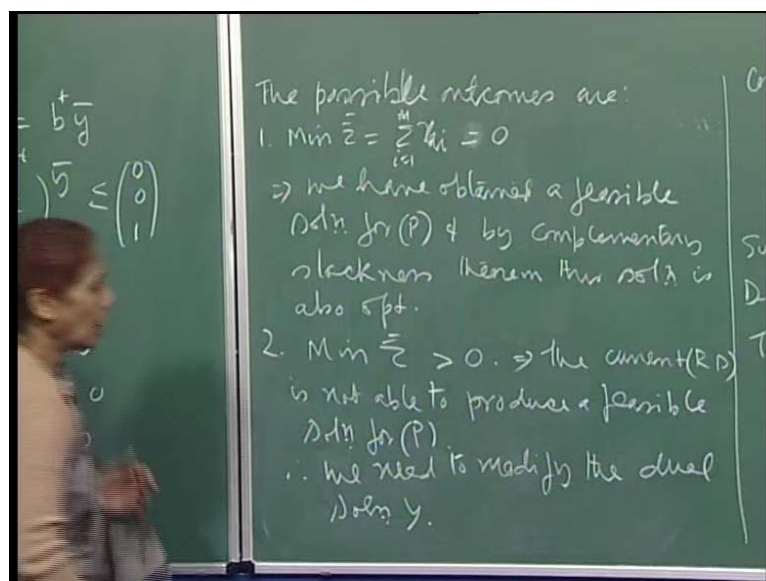 = b^t ȳ
) ȳ ≤ (0 0 1)
The possible outcomes are:
1. Min ξ̄ = Σ_{i=1}^{m} x_{ai} = 0
⇒ we have obtained a feasible
soln. for (P) & by complementary
slackness theorem this soln is
also opt.
2. Min ξ̄ > 0. ⇒ the current (RD)
is not able to produce a feasible
soln for (P).
∴ we need to modify the dual
soln y.